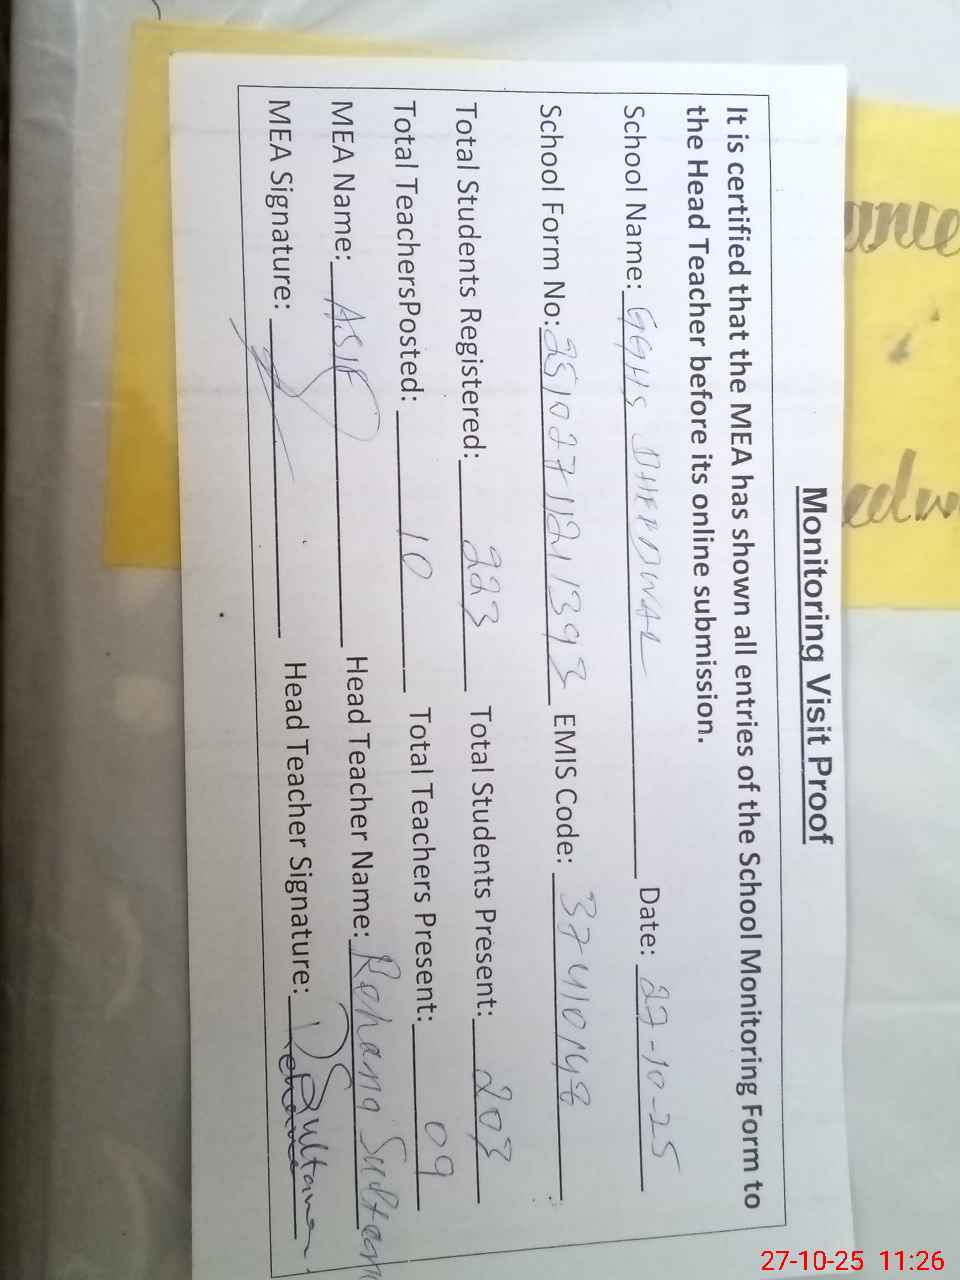 Monitoring Visit Proof
It is certified that the MEA has shown all entries of the School Monitoring Form to
the Head Teacher before its online submission.
School Name: GGHS Date: 27-10-25
School Form No: 25102711211393 EMIS Code: 37410148
Total Students Registered: 223 Total Students Present: 203
Total TeachersPosted: 10 Total Teachers Present: 09
MEA Name: ASIF Head Teacher Name: Rehana Sultana
MEA Signature: Head Teacher Signature: Rehana Sultana
27-10-25 11:26